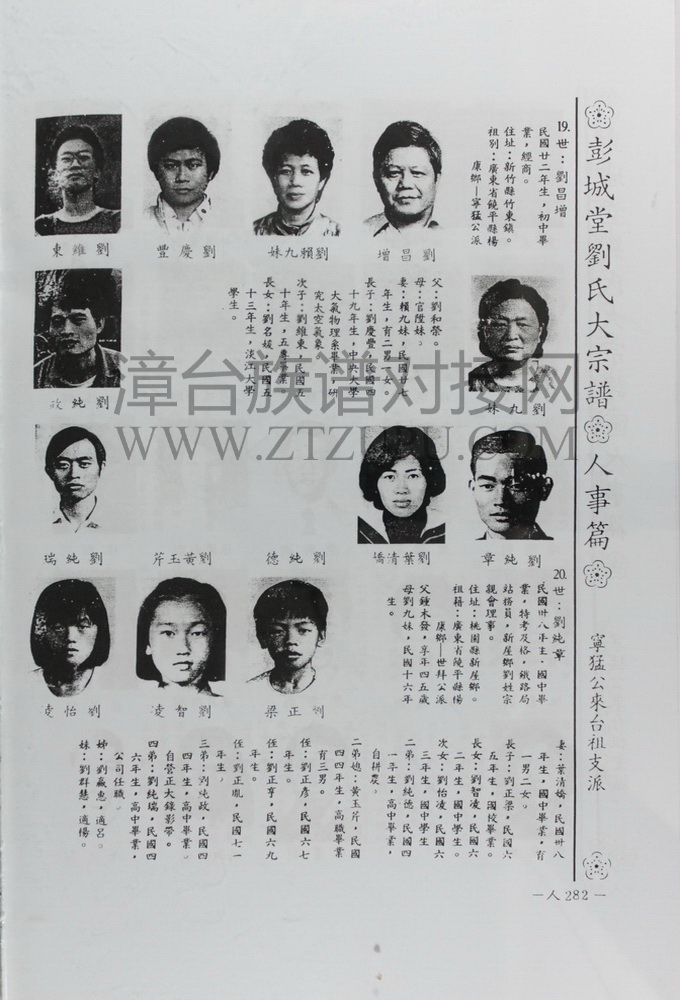 彭城堂劉氏大宗譜
人事篇
寧猛公來台祖支派
19.世：劉昌增
民國廿二年生，初中畢
業，經商。
住址：新竹縣竹東鎮。
祖別：廣東省饒平縣楊
康鄉—寧猛公派
劉昌增
劉賴九妹
劉慶豐
劉維東
父：劉和榮。
母：官陞妹。
妻：賴九妹，民國廿七
年生，有二男一女。
長子：劉慶豐，民國四
十九年生，中央大學
大氣物理系畢業，研
究太空氣象
次子：劉維東，民國五
十年生，五專畢業
長女：劉名媛，民國五
十三年生，淡江大學
學生。
劉九妹
劉純政
劉純章
劉葉清嬌
劉純德
劉黃玉芹
劉純瑞
20.世：劉純章
民國卅八年生．國中畢
業，特考及格，鐵路局
站務員，新屋鄉劉姓宗
親會理事。
住址：桃園縣新屋鄉。
祖籍：廣東省饒平縣楊
康鄉—世拜公派
父鍾木發，享年四五歲
母劉九妹，民國十六年
生。
劉正梁
劉智凌
劉怡凌
妻：葉清嬌，民國卅八
年生，國中畢業，有
一男二女。
長子：劉正梁，民國六
五年生，國校畢業。
長女：劉智凌，民國六
二年生，國中學生。
次女：劉怡凌，民國六
三年生，國中學生
二弟：劉純德，民國四
一年生，高中畢業，
自耕農。
二弟媳：黃玉芹，民國
四四年生，高職畢業
有三男。
侄：劉正彥，民國六七
年生。
侄：劉正亨，民國六九
年生。
侄：劉正胤，民國七一
年生。
三弟：劉純政，民國四
四年生，高中畢業。
自營正大錄影帶。
四弟：劉純瑞，民國四
六年生，高中畢業，
公司任職。
姊：劉嬴惠，適呂。
妹：劉群慧，適楊。
—人282—
漳台族谱对接网
WWW.ZTZUPU.COM